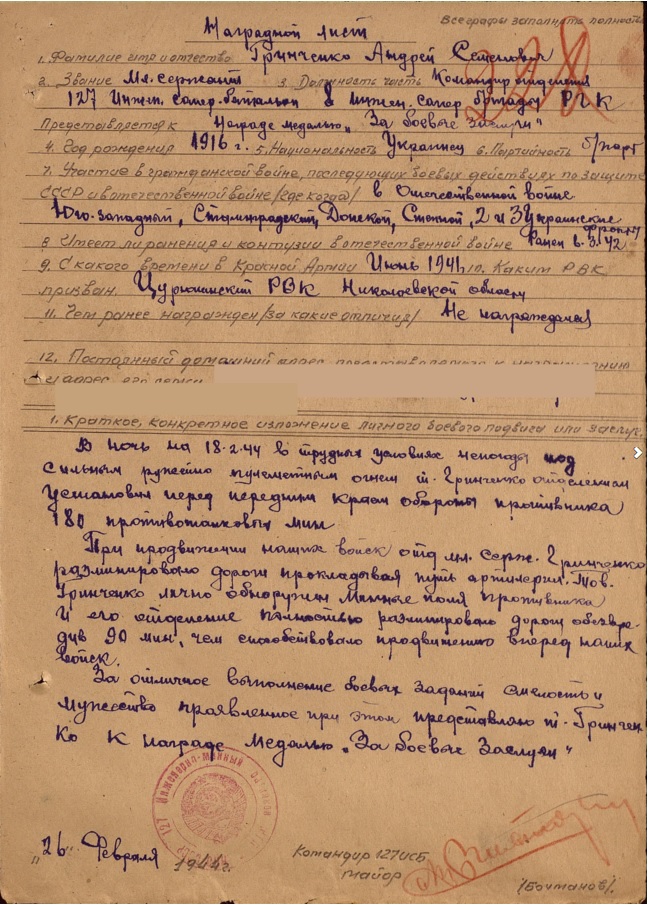 Все графы заполнять полность
Наградной лист
1. Фамилие имя и отчество Гринченко Андрей Семенович
2. Звание Мл. сержант 3. Должность часть Командир отделения
127 Инжен. сапер. батальон 8 инжен. сапер бригады РГК
Представляется к Награде медалью „За боевые Заслуги"
4. Год рождения 1916 г. 5. Национальность Украинец 6. Партийность б/парт
7. Участие в гражданской войне, последующих боевых действиях по защите
СССР и вотечественной войне /где когда/ в Отечественной войне
Юго-западный, Сталинградский, Донской, Степной, 2 и 3 Украинские
фронты
8. Имеет ли ранения и контузии в отечественной войне Ранен 6.3.42
9. С какого времени в Красной Армии Июнь 1941 10. Каким РВК
призван. РВК Николаевской области
11. Чем ранее награжден /за какие отличия/ Не награждался
12. Постоянный домашний адрес
1. Краткое, конкретное изложение личного боевого подвига или заслуг.
В ночь на 18.2.44 в трудных условиях непогоды под
сильным ружейно пулеметным огнем т. Гринченко отделением
установил перед передним краем обороны противника
180 противотанковых мин
При продвижении наших войск отд мл. серж. Гринченко
разминировало дороги прокладывая путь артилерии. Тов.
Гринченко лично обнаружил Минные поля противника
И его отделение полностью разминировало дороги обезвре-
див 90 мин, чем способствовало продвижению вперед наших
войск.
За отличное выполнение боевых заданий смелость и
мужество проявленное при этом представляю т. Гринчен-
ко к награде медалью „За боевые Заслуги"
127 Инженерно-минный
„26" Февраля 1944г.
Командир 127исб
майор
/Бочтанов/